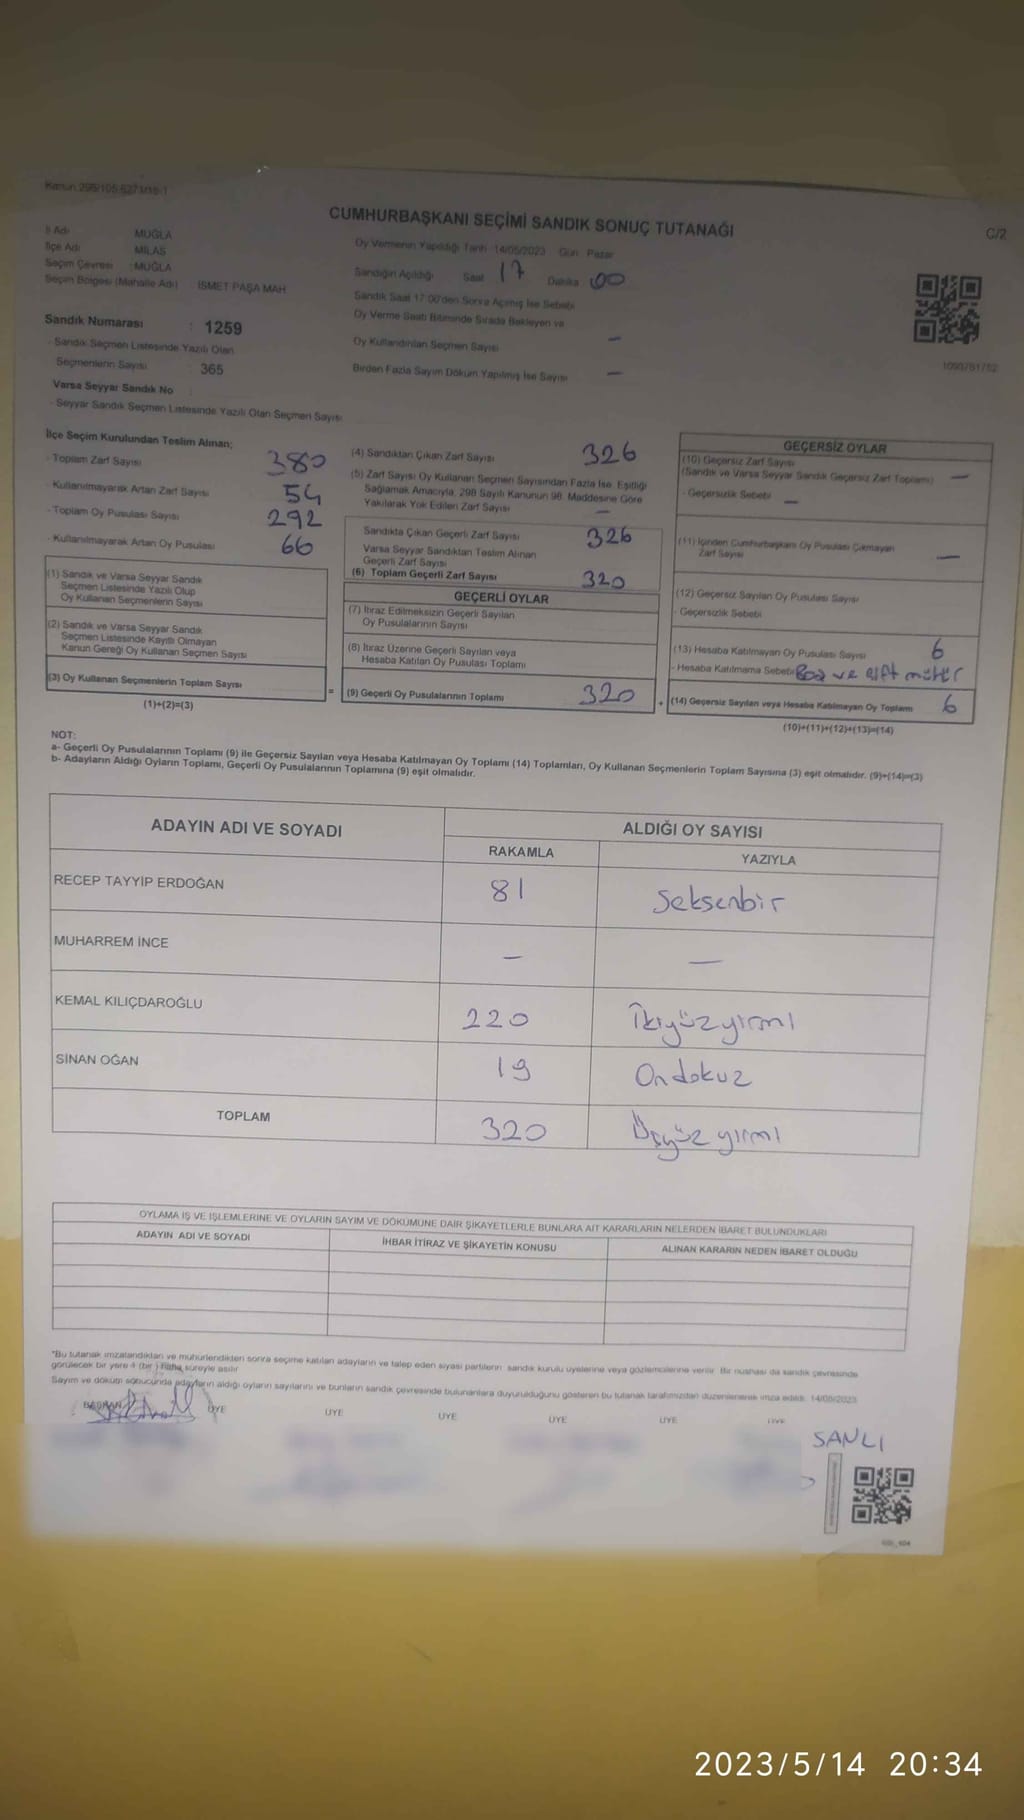 Kanun 298/105-627 M/18-1
CUMHURBAŞKANI SEÇİMİ SANDIK SONUÇ TUTANAĞI
C/2
İl Adı MUĞLA
İlçe Adı MİLAS
Seçim Çevresi : MUĞLA
Seçim Bölgesi (Mahalle Adı) İSMET PAŞA MAH
Oy Vermenin Yapıldığı Tarih 14/05/2023 Gün Pazar
Sandığın Açıldığı Saat 17 Dakika 00
Sandık Saat 17:00'den Sonra Açılmış İse Sebebi
Oy Verme Saati Bitiminde Sırada Bekleyen ve
Oy Kullandırılan Seçmen Sayısı –
Birden Fazla Sayım Döküm Yapılmış İse Sayısı –
Sandık Numarası : 1259
- Sandık Seçmen Listesinde Yazılı Olan
Seçmenlerin Sayısı : 365
Varsa Seyyar Sandık No :
- Seyyar Sandık Seçmen Listesinde Yazılı Olan Seçmen Sayısı
İlçe Seçim Kurulundan Teslim Alınan;
- Toplam Zarf Sayısı 380
- Kullanılmayarak Artan Zarf Sayısı 54
- Toplam Oy Pusulası Sayısı 292
- Kullanılmayarak Artan Oy Pusulası 66
(1) Sandık ve Varsa Seyyar Sandık
Seçmen Listesinde Yazılı Olup
Oy Kullanan Seçmenlerin Sayısı
(2) Sandık ve Varsa Seyyar Sandık
Seçmen Listesinde Kayıtlı Olmayan
Kanun Gereği Oy Kullanan Seçmen Sayısı
(3) Oy Kullanan Seçmenlerin Toplam Sayısı
(1)+(2)=(3)
=
(4) Sandıktan Çıkan Zarf Sayısı 326
(5) Zarf Sayısı Oy Kullanan Seçmen Sayısından Fazla İse, Eşitliği
Sağlamak Amacıyla, 298 Sayılı Kanunun 98. Maddesine Göre
Yakılarak Yok Edilen Zarf Sayısı –
Sandıkta Çıkan Geçerli Zarf Sayısı 326
Varsa Seyyar Sandıktan Teslim Alınan
Geçerli Zarf Sayısı
(6) Toplam Geçerli Zarf Sayısı 320
GEÇERLİ OYLAR
(7) İtiraz Edilmeksizin Geçerli Sayılan
Oy Pusulalarının Sayısı
(8) İtiraz Üzerine Geçerli Sayılan veya
Hesaba Katılan Oy Pusulası Toplamı
(9) Geçerli Oy Pusulalarının Toplamı 320
+
GEÇERSİZ OYLAR
(10) Geçersiz Zarf Sayısı
(Sandık ve Varsa Seyyar Sandık Geçersiz Zarf Toplamı) –
- Geçersizlik Sebebi –
(11) İçinden Cumhurbaşkanı Oy Pusulası Çıkmayan
Zarf Sayısı –
(12) Geçersiz Sayılan Oy Pusulası Sayısı
- Geçersizlik Sebebi
(13) Hesaba Katılmayan Oy Pusulası Sayısı 6
- Hesaba Katılmama Sebebi Boş ve çift mühür
(14) Geçersiz Sayılan veya Hesaba Katılmayan Oy Toplamı 6
(10)+(11)+(12)+(13)=(14)
NOT:
a- Geçerli Oy Pusulalarının Toplamı (9) ile Geçersiz Sayılan veya Hesaba Katılmayan Oy Toplamı (14) Toplamları, Oy Kullanan Seçmenlerin Toplam Sayısına (3) eşit olmalıdır. (9)+(14)=(3)
b- Adayların Aldığı Oyların Toplamı, Geçerli Oy Pusulalarının Toplamına (9) eşit olmalıdır.
ADAYIN ADI VE SOYADI ALDIĞI OY SAYISI
RAKAMLA YAZIYLA
RECEP TAYYİP ERDOĞAN 81 Seksenbir
MUHARREM İNCE – –
KEMAL KILIÇDAROĞLU 220 İkiyüzyirmi
SİNAN OĞAN 19 Ondokuz
TOPLAM 320 Üçyüz yirmi
OYLAMA İŞ VE İŞLEMLERİNE VE OYLARIN SAYIM VE DÖKÜMÜNE DAİR ŞİKAYETLERLE BUNLARA AİT KARARLARIN NELERDEN İBARET BULUNDUKLARI
ADAYIN ADI VE SOYADI İHBAR İTİRAZ VE ŞİKAYETİN KONUSU ALINAN KARARIN NEDEN İBARET OLDUĞU
*Bu tutanak imzalandıktan ve mühürlendikten sonra seçime katılan adayların ve talep eden siyasi partilerin sandık kurulu üyelerine veya gözlemcilerine verilir. Bir nüshası da sandık çevresinde
görülecek bir yere 1 (bir) hafta süreyle asılır
Sayım ve döküm sonucunda adayların aldığı oyların sayılarını ve bunların sandık çevresinde bulunanlara duyurulduğunu gösteren bu tutanak tarafımızdan düzenlenerek imza edildi. 14/05/2023
BAŞKAN ÜYE ÜYE ÜYE ÜYE ÜYE ÜYE
SANLI
2023/5/14 20:34